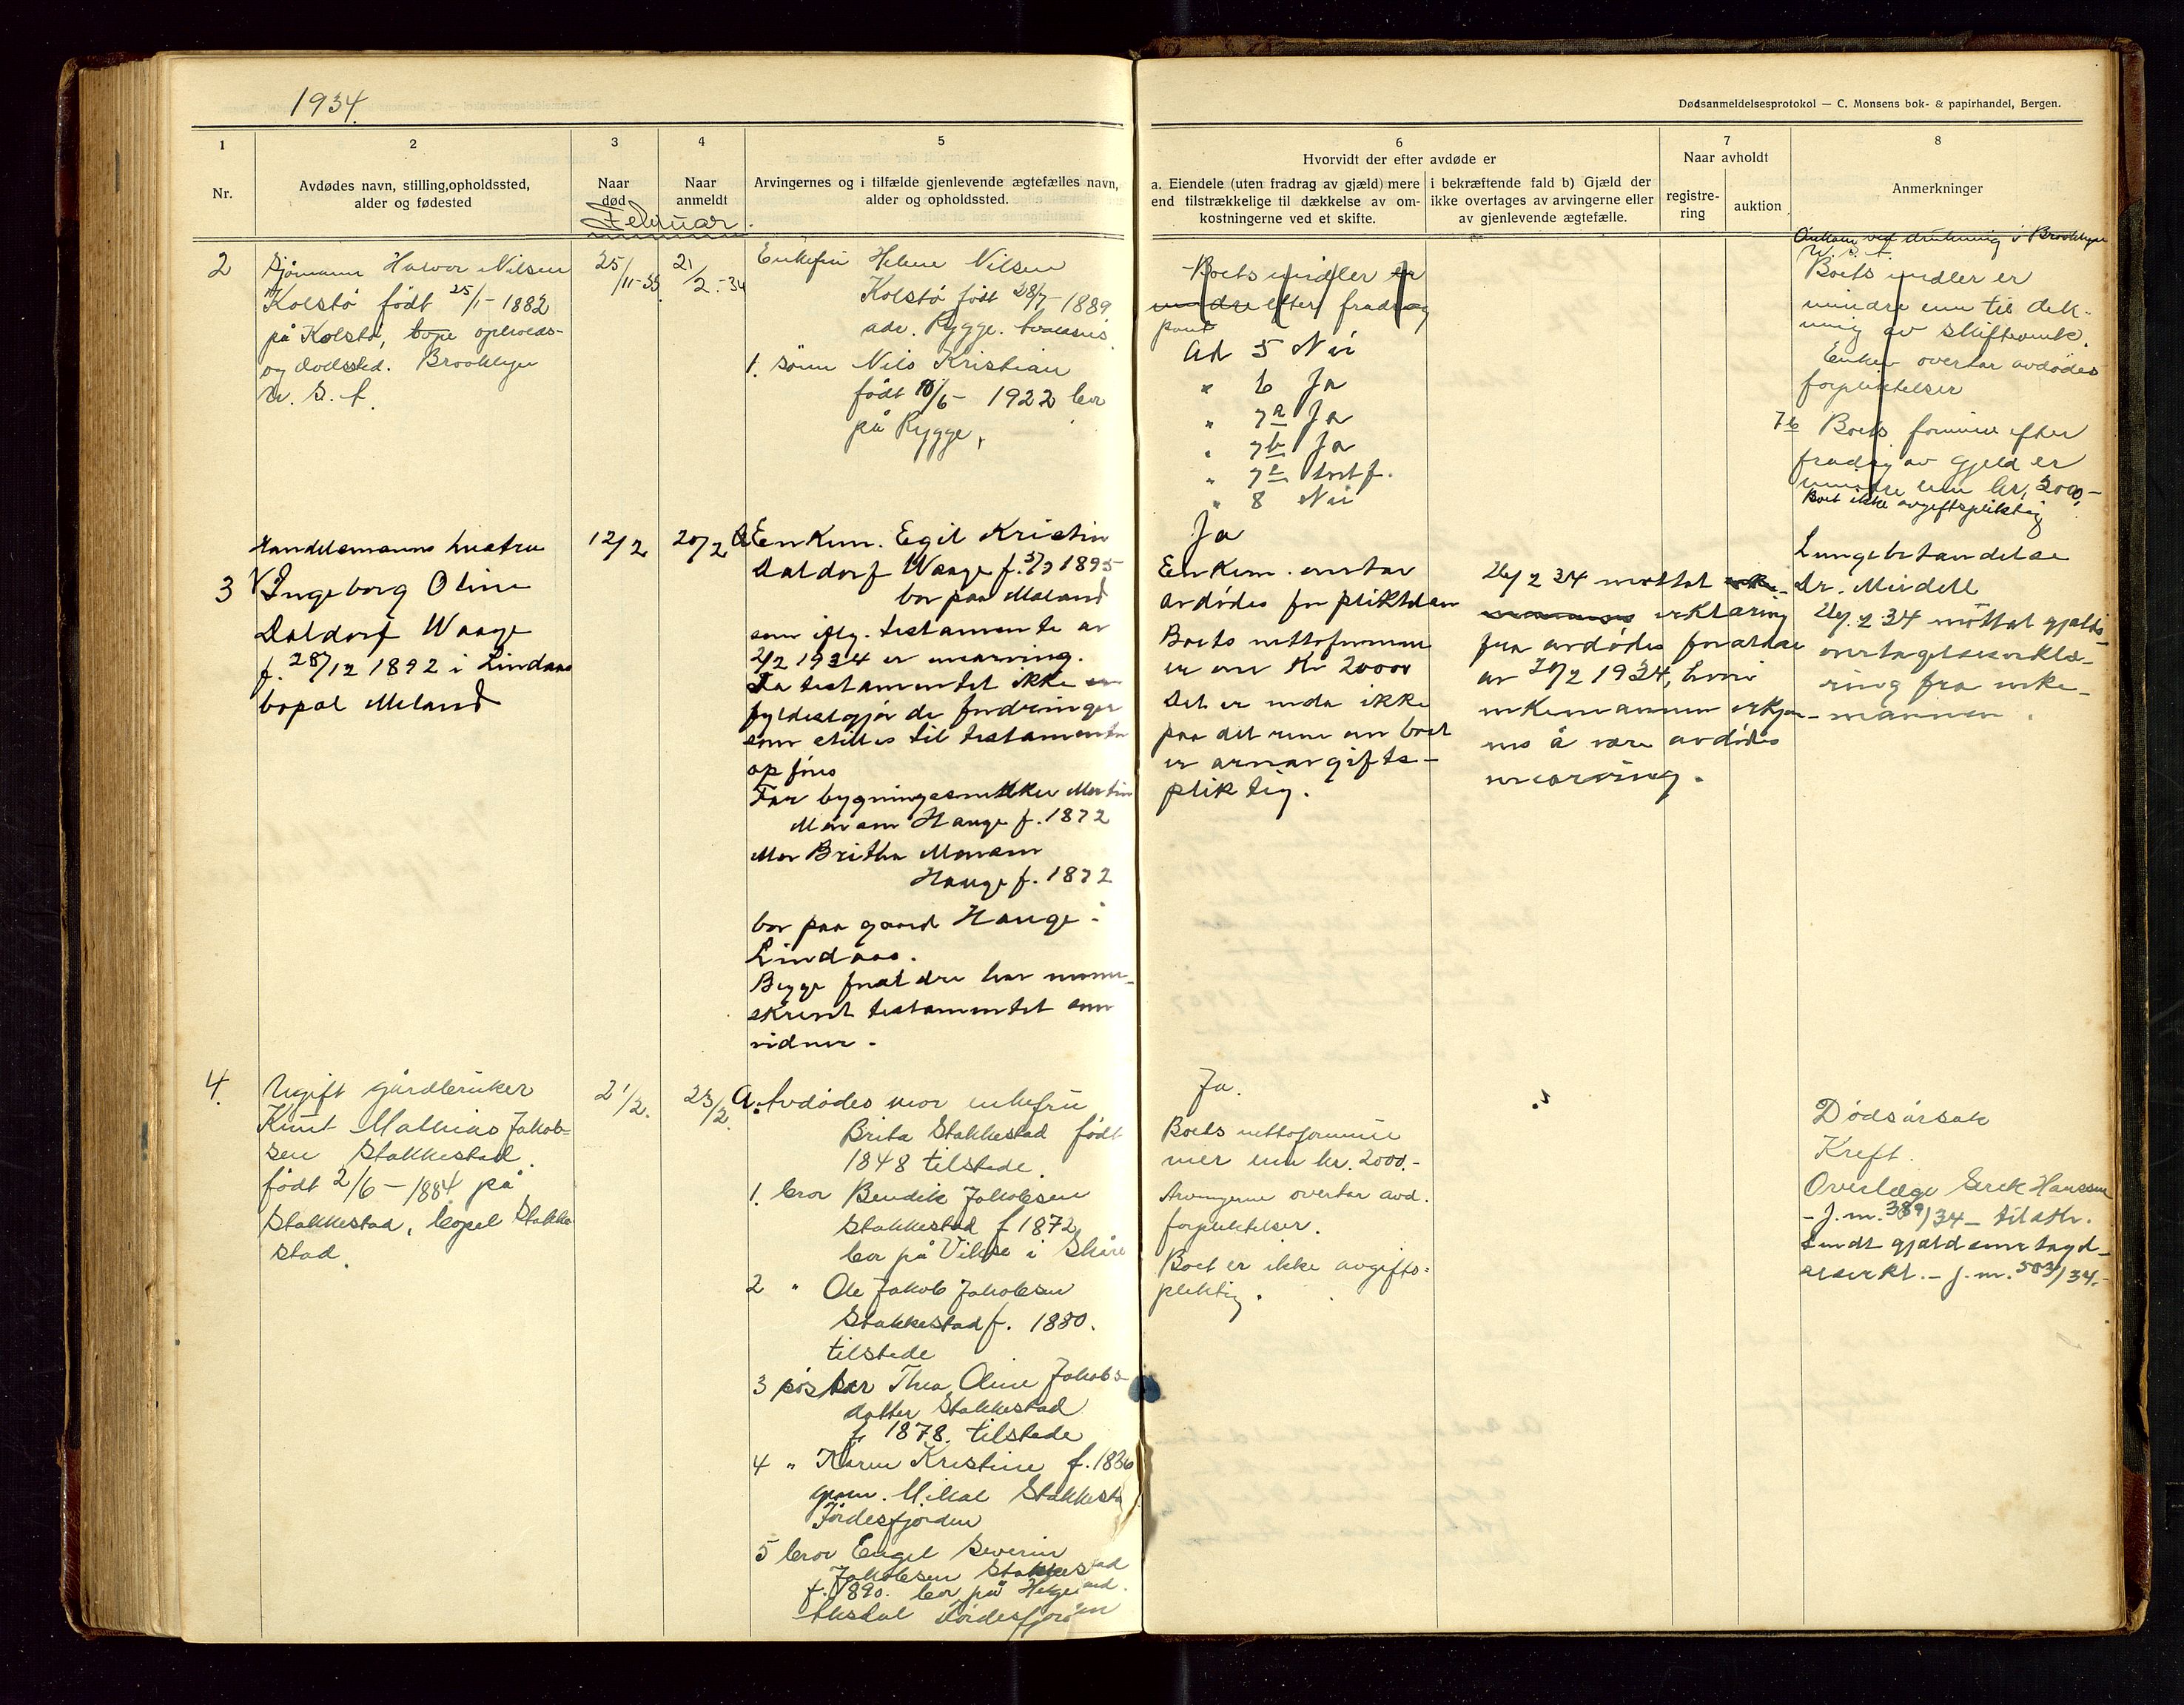 1934.
Dødsanmeldelsesprotokol — C. Monsens bok- & papirhandel, Bergen.
1
2
3
4
5
6
7
8
Nr.
Avdødes navn, stilling, opholdssted,
alder og fødested
Naar
død
Naar
anmeldt
Arvingernes og i tilfælde gjenlevende ægtefælles navn,
alder og opholdssted.
Hvorvidt der efter avdøde er
a. Eiendele (uten fradrag av gjæld) mere
end tilstrækkelige til dækkelse av om-
kostningerne ved et skifte.
i bekræftende fald b) Gjæld der
ikke overtages av arvingerne eller
av gjenlevende ægtefælle.
Naar avholdt
registre-
ring
auktion
Anmerkninger
Februar.
2
Sjømann Halvor Nilsen
Kolstø født 25/1-1882
på Kolstø, opholds-
og dødssted. Brooklyn
U. S. A.
25/11-33
21/2-34
Enkefru Helene Nilsen
Kolstø født 28/7-1889
adr. Rygge.
1. sønn Nils Kristian
født 10/6-1922 bor
på Rygge,
Boets midler er
mindre efter fradrag
Ad 5 Nei
" 6 Ja
" 7a Ja
" 7b Ja
" 7c
" 8 Nei
Omkom ved drukning i Brooklyn
U. S. A.
Boets midler er
mindre enn til dek-
ning av skifteomk.
Enken overtar avdødes
forpliktelser
7b Boets formue efter
fradrag av gjeld er
mindre enn kr. 2000,-
Boet ikke avgiftspliktig
3
Handelsmanns hustru
Ingeborg Oline
Daldorf Waage
f. 28/12 1892 i Lindaas
bopæl Meland
12/2
20/2
a Enkem. Egil Kristin
Daldorf Waage f. 1895
bor paa Meland
som iflg. testamente av
2/2 1934 er enearving.
Da testamentet ikke
fyldestgjør de fordringer
som stilles til testamenter
opføres
Far bygningssnekker Martin
Monsen Hauge f. 1872
Mor Britha Monsen
Hauge f. 1872
bor paa gaard Hauge i
Lindaas.
Begge forældre har under-
skrevet testamentet som
vidner.
Ja
Enkem. overtar
avdødes forpliktelser
Boets nettoformue
er over Kr 2000
Det er enda ikke
paa det rene om boet
er arveavgifts-
pliktig.
26/2 34 mottat
erklæring
fra avdødes forældre
av 20/2 1934, hvori
enkemannen erkjen-
nes å være avdødes
enearving.
Lungebetændelse
Dr. Meidell
26/2 34 mottat gjælds-
overtagelseserklæ-
ring fra enke-
mannen.
4.
Ugift gårdbruker
Knut Mathias Jakob-
sen Stakkestad.
født 2/6-1884 på
Stakkestad, bopel Stakke-
stad.
21/2.
23/2.
a. Avdødes mor enkefru
Brita Stakkestad født
1848 tilstede.
1. bror Bendik Jakobsen
Stakkestad f 1872
bor på Vikse i Skåre
2 " Ole Jakob Jakobsen
Stakkestad f. 1880.
tilstede
3 søster Thea Oline Jakobs-
datter Stakkestad
f. 1878. tilstede
4 " Karen Kristine f. 1886
Mikal Stakkestad
Førdesfjorden
5 bror Engel Severin
Jakobsen Stakkestad
f. 1890. bor på Helgeland
Aksdal Førdesfjorden
Ja.
Boets nettoformue
mer enn kr. 2000.-
Arvingerne overtar avd.
forpliktelser.
Boet er ikke avgifts-
pliktig.
Dødsårsak
Kreft.
Overlæge Hanssen
- J. nr. 389/34 -
Sendt gjældsovertagel-
seserkl. - J. nr. 503/34.-